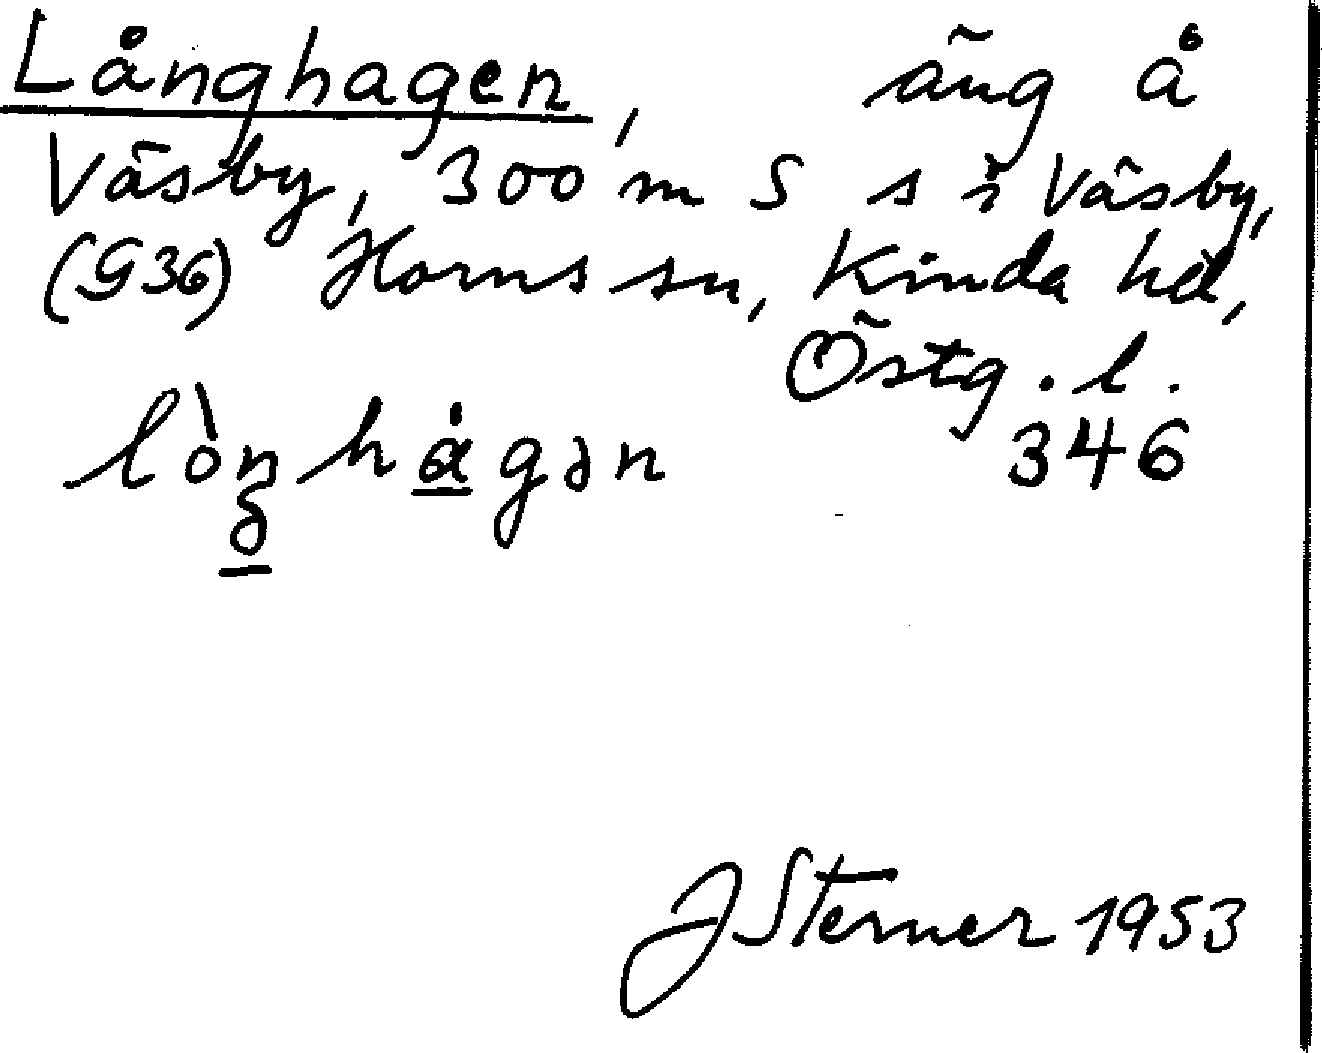 Långhagen, äng å
Väsby, 300 m S s i Väsby,
(G36) Horns sn, Kinda hd,
Östg. l.
346
JSterner 1953